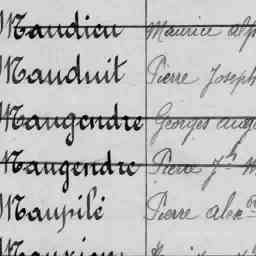 Maudieu Maurice
Mauduit Pierre Joseph
Maugendre Georges
Maugendre Pierre Jh
Maupilé Pierre alex